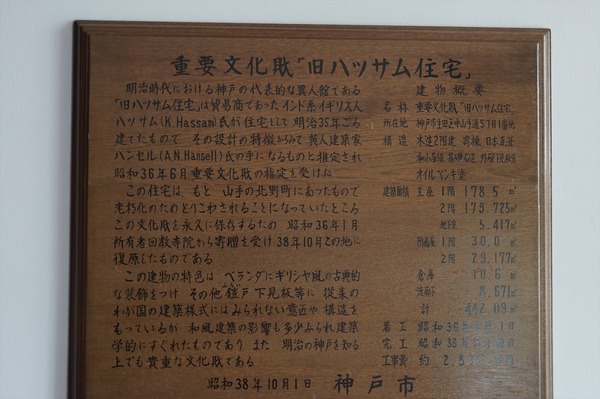 重要文化財「旧ハツサム住宅」
明治時代における神戸の代表的な異人館である
「旧ハツサム住宅」は貿易商であったインド系イギリス人
ハツサム(K.Hassam)氏が住宅として 明治35年ごろ
建てたもので その設計の特徴からみて 英人建築家
ハンセル(A.N.Hansell)氏の手になるものと推定され
昭和36年6月重要文化財の指定を受けた
この住宅は もと 山手の北野町にあったもので
老朽化のためとりこわされることになっていたところ
この文化財を永久に保存するため 昭和36年1月
所有者回教寺院から寄贈を受け 38年10月この地に
復原したものである
この建物の特色は ベランダにギリシヤ風の古典的
な装飾をつけ その他 鎧戸 下見板等に 従来の
わが国の建築様式には みられない意匠や 構造を
もっているが 和風建築の影響も多少みられ建築
学的にすぐれたものであり また 明治の神戸を知る
上でも貴重な文化財である
建物概要
名称 重要文化財「旧ハツサム住宅」
所在地 神戸市生田区中山手通5丁目1番地
構造 木造2階建 寄棟 日本瓦葺
オイルペンキ塗
建築面積 主屋 1階 178.5㎡
2階 179.725㎡
地階 5.417㎡
附属屋 1階 30.0㎡
2階 29.177㎡
倉庫 10.6㎡
8.671㎡
計 442.09㎡
着工 昭和36年 月1日
完工 昭和38年
工事費 約
昭和38年10月1日 神戸市